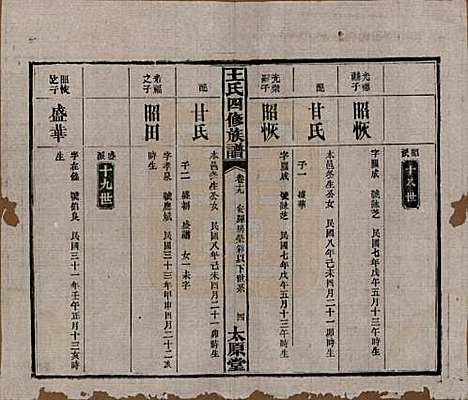 昭派
十八世
光福嗣子
昭恢
字國威 號詠芝 民國七年戊午五月十三午時生
配
甘氏
本邑癸生公女 民國八年己未四月二十一卯時生
子一 盛華
光榮嗣子
昭恢
字國威 號詠芝 民國七年戊午五月十三午時生
王氏四修族譜
卷十九
四
太原堂
配
甘氏
本邑癸生公女 民國八年己未四月二十一卯時生
子二 盛初 盛譜 女一未字
光福之子
昭田
字孝泉 號應斌 民國三十三年甲申四月二十二亥時生
盛派
十九世
昭恢之子
盛華
字在鎔 號鎔良 民國三十一年壬午正月十三寅時生